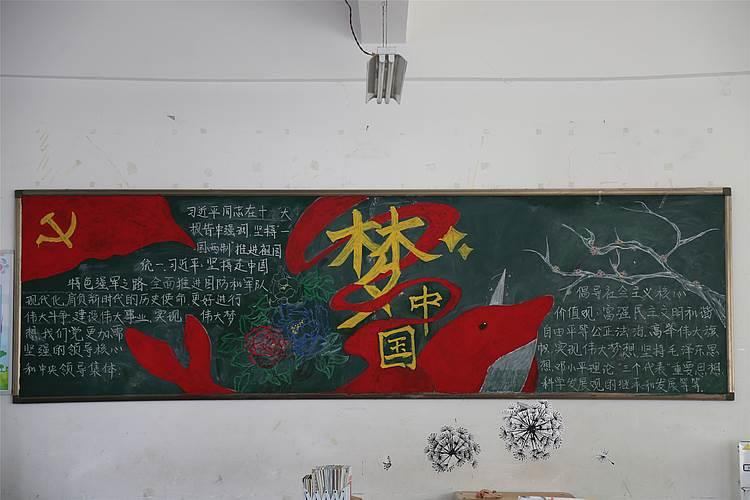 习近平同志在十 大
报告中强调,坚持"一
国两制"推进祖国
统一,习近平:坚持走中国
特色强军之路,全面推进国防和军队
现代化,肩负新时代的历史使命,更好进行
伟大斗争,建设伟大事业,实现 伟大梦
想,我们党更加需
坚强的领导核心
和中央领导集体.
梦
中
国
倡导社会主义核心
价值观,富强民主文明和谐
自由平等公正法治,高举伟大旗
帜,实现伟大梦想,坚持毛泽东思
想,邓小平理论"三个代表"重要思想
科学发展观的继承和发展等等.